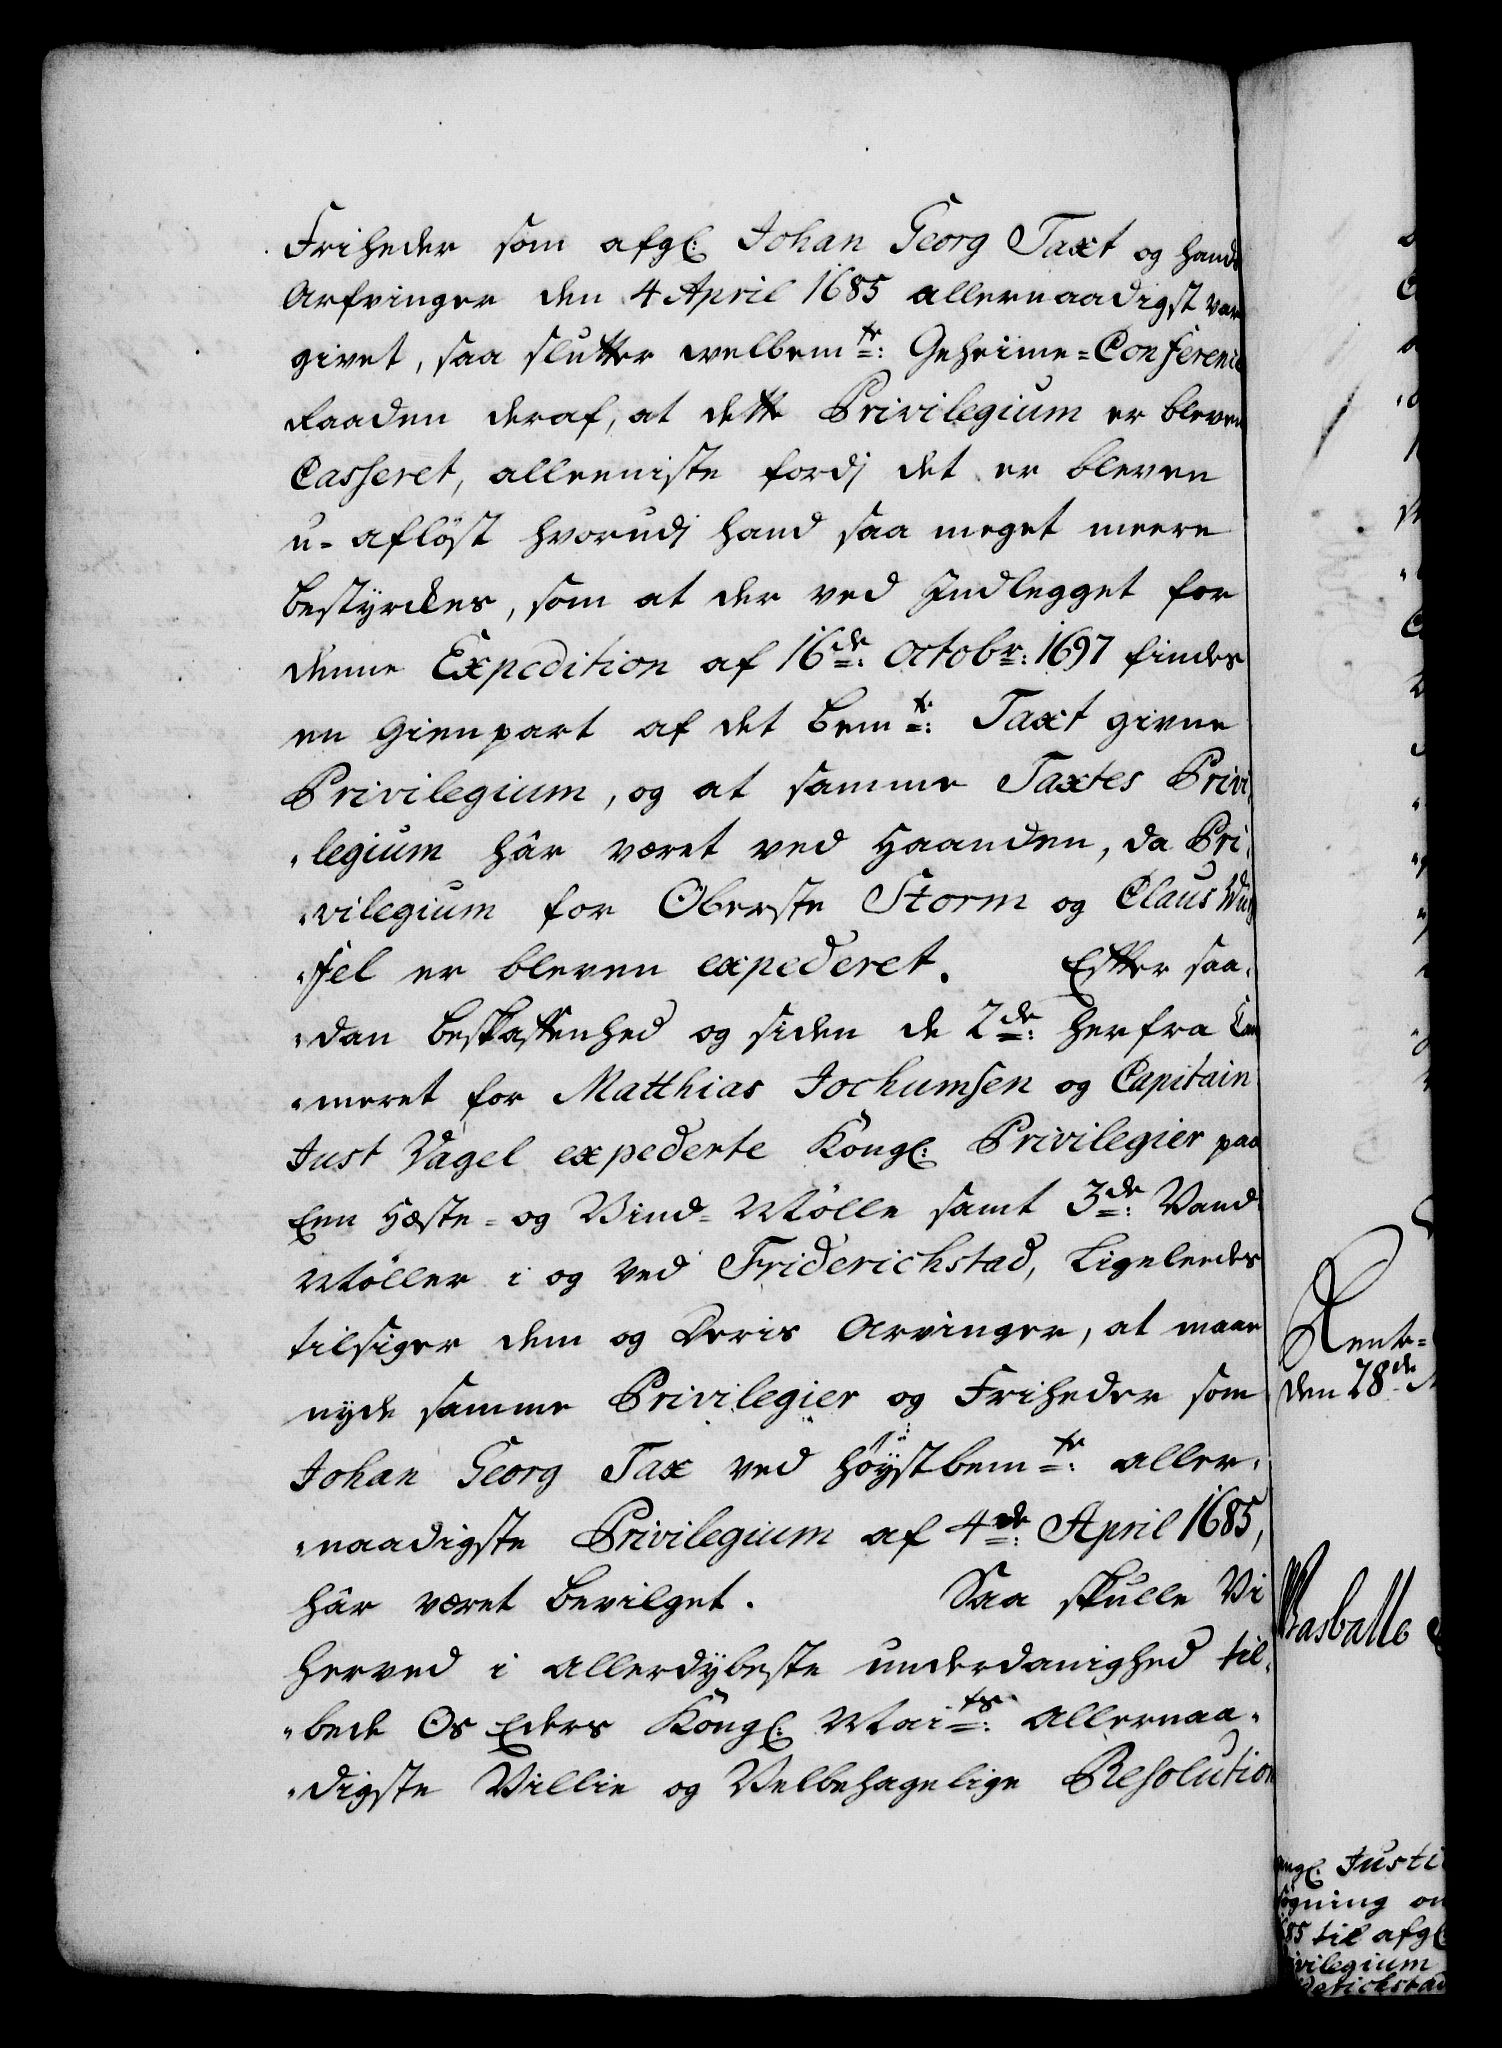 Friheder som afgl: Johan Georg Taxt og hands
Arfvinger den 4 April 1685 allernaadigst var
givet, saa slutter welbemte: Geheime=Conferenc
Raaden deraf, at dette Privilegium er bleven
Casseret, alleeniste fordj det er bleven
u= aflöst hvorudj hand saa meget meere
bestyrckes, som at der ved Indlegget for
denne Expedition af 16de: Octobr: 1697 findes
en Gienpart af det bemte: Taxt givne
Privilegium, og at samme Taxtes Privi
legium hâr været ved Haanden, da Pri
vilegium for Oberste Storm og Claus
fel er bleven expederet. Efter saa
dan beskaffenhed og siden de 2de: herfra
meret for Matthias Jochumsen og Capitain
Just Vagel expederte Kongl: Privilegier paa
Een Hæste= og Vind= Mölle samt 3de: Vand
Möller i og ved Friderichstad, Ligeleedes
tilsiger dem og Deris Arvinger, at maae
nyde samme Privilegier og Friheder som
Johan Georg Tax ved höystbemte: aller
naadigste Privilegium af 4de: April 1685,
hâr været bevilget. Saa skulle Vi
herved i allerdybeste underdanighed til
bede Os Eders Kongl: Maits: allernaa
digste Villie og Velbehagelige Resolution
Rente=
den 28de
Justi
ögning om
85 til afgl
ivilegium